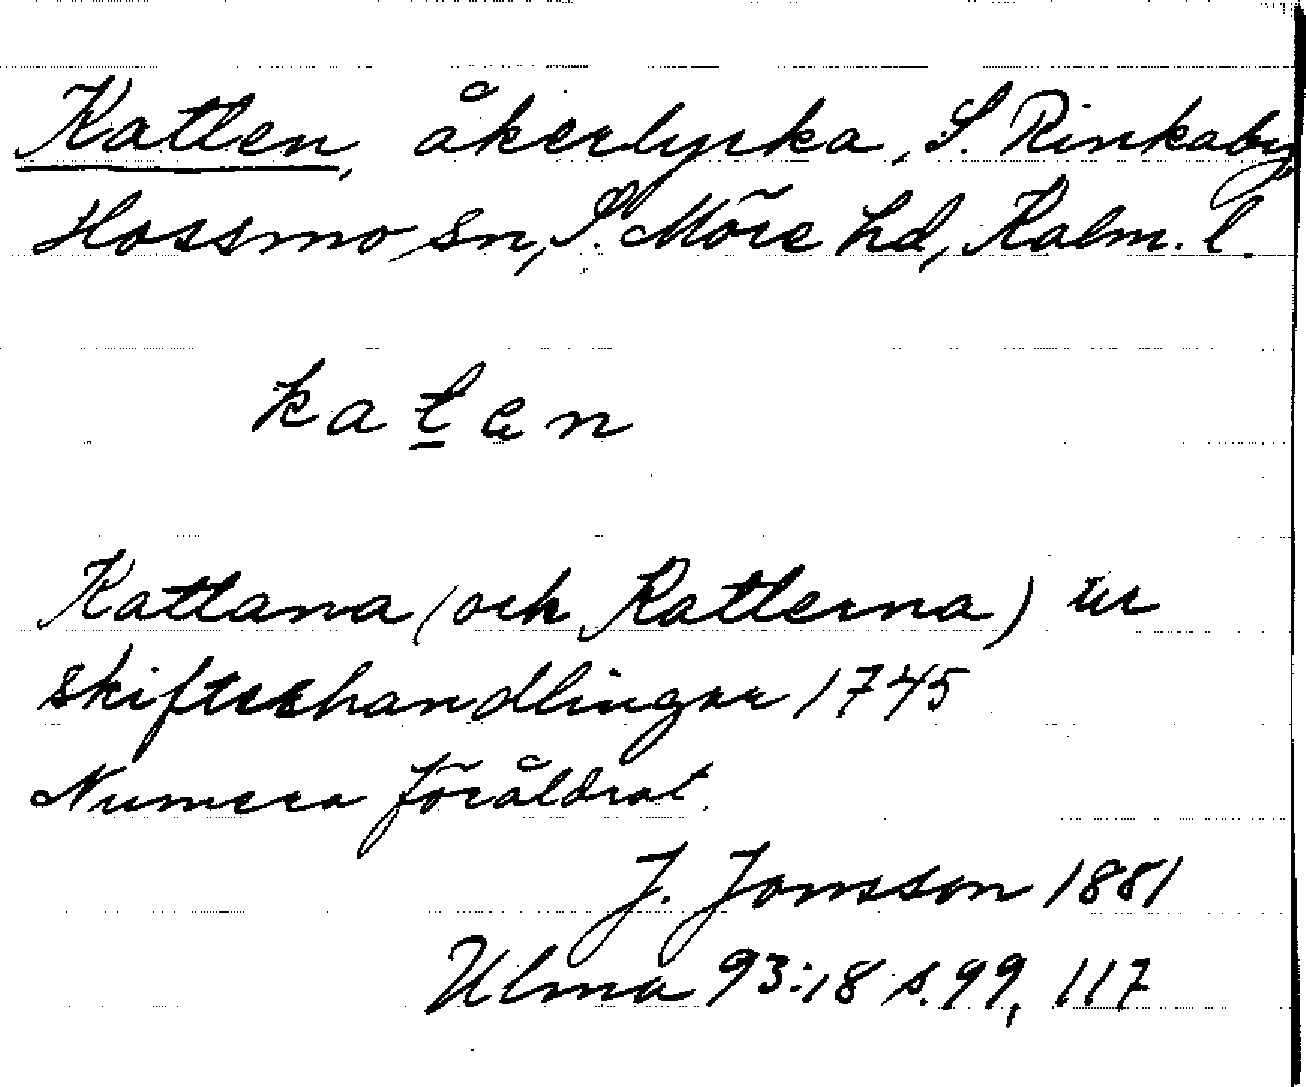 Katten, åkerlyrka, S. Rinkaby
Hossmo sn, S. Möre hd, Kalm. l.
katen
Kattana (och Katterna) ur
skifteshandlingar 1745
Numera föråldrat.
J. Jonsson 1881
Ulma 93:18 s. 99, 117